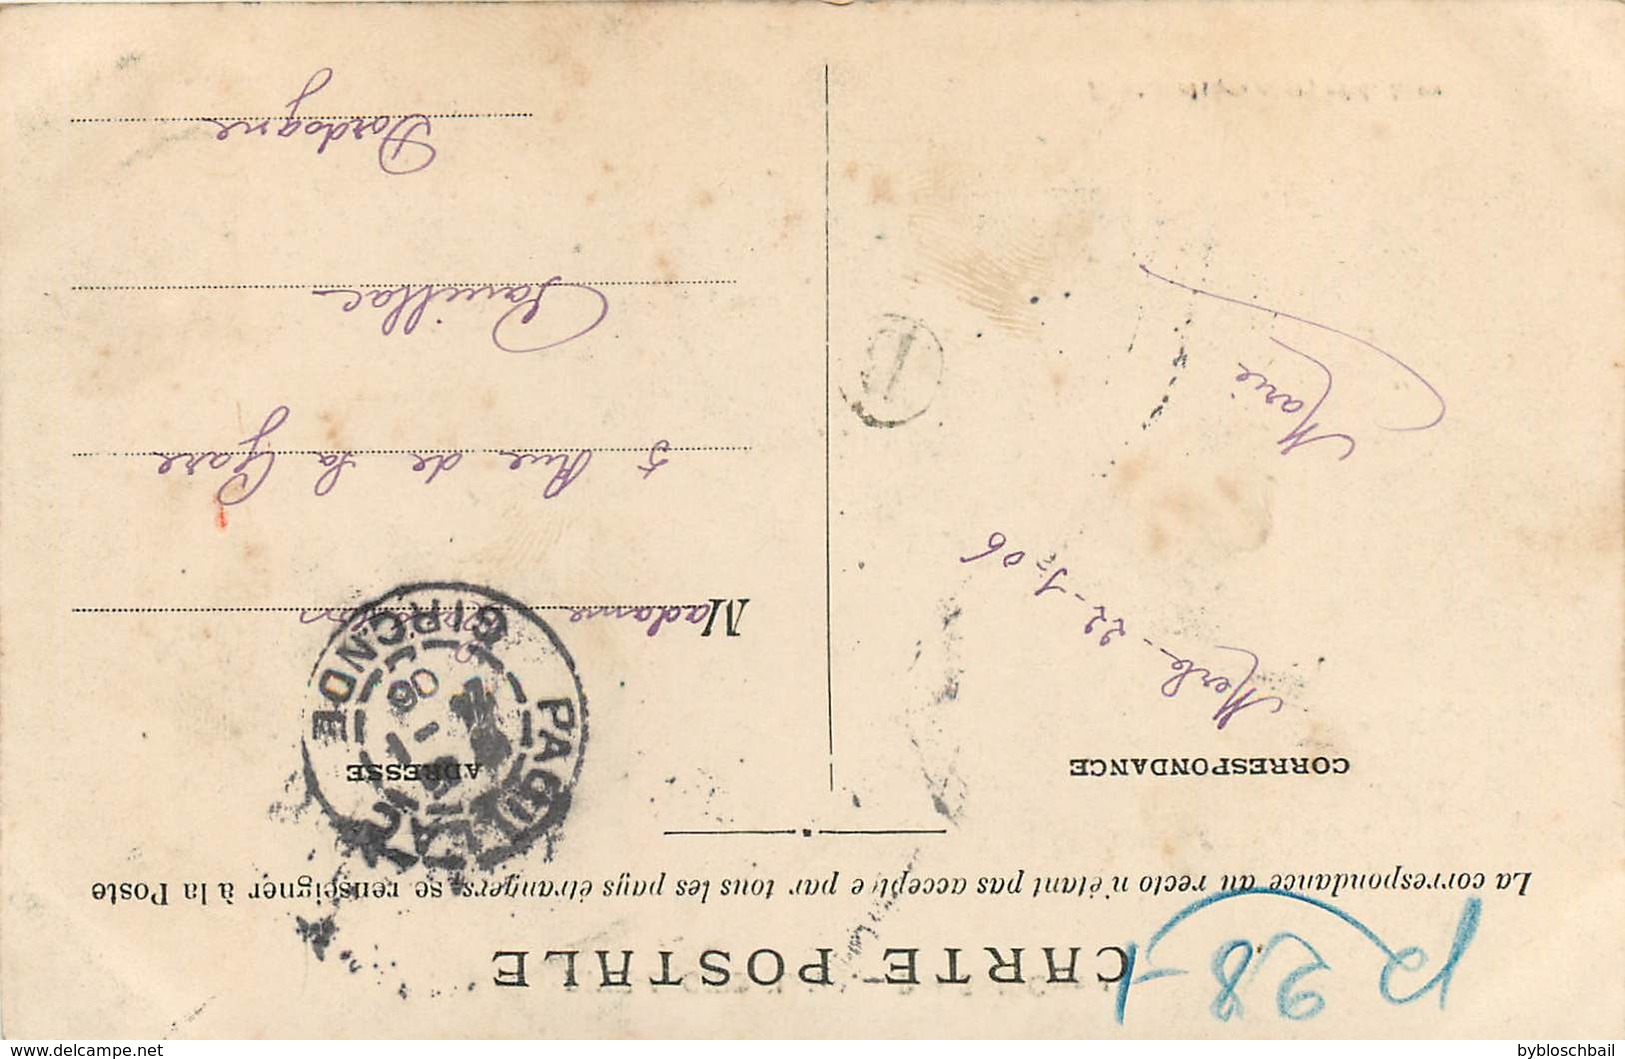 CARTE POSTALE
La correspondance au recto n'étant pas acceptée par tous les pays étrangers, se renseigner à la Poste
CORRESPONDANCE
22-1-06
Marie
ADRESSE
Madame
5 Rue de la Gare
Pauillac
Dordogne
PAUILLAC
GIRONDE
06
T
28-1
www.delcampe.net
bybloschbail